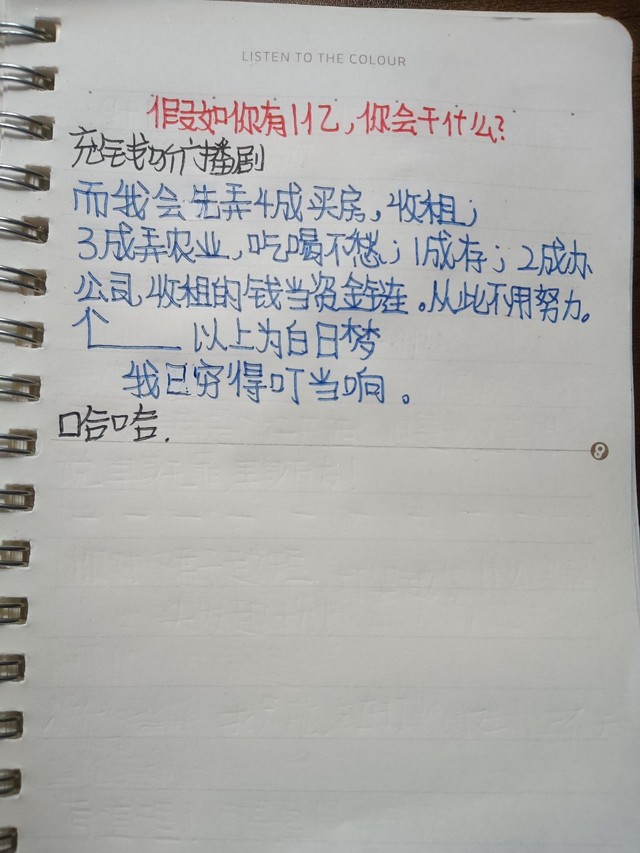 LISTEN TO THE COLOUR
假如你有1亿，你会干什么？
充钱听广播剧
而我会先弄4成买房，收租；
3成弄农业，吃喝不愁；1成存；2成办
公司，收租的钱当资金链。从此不用努力。
个 以上为白日梦
我已穷得叮当响。
哈哈.